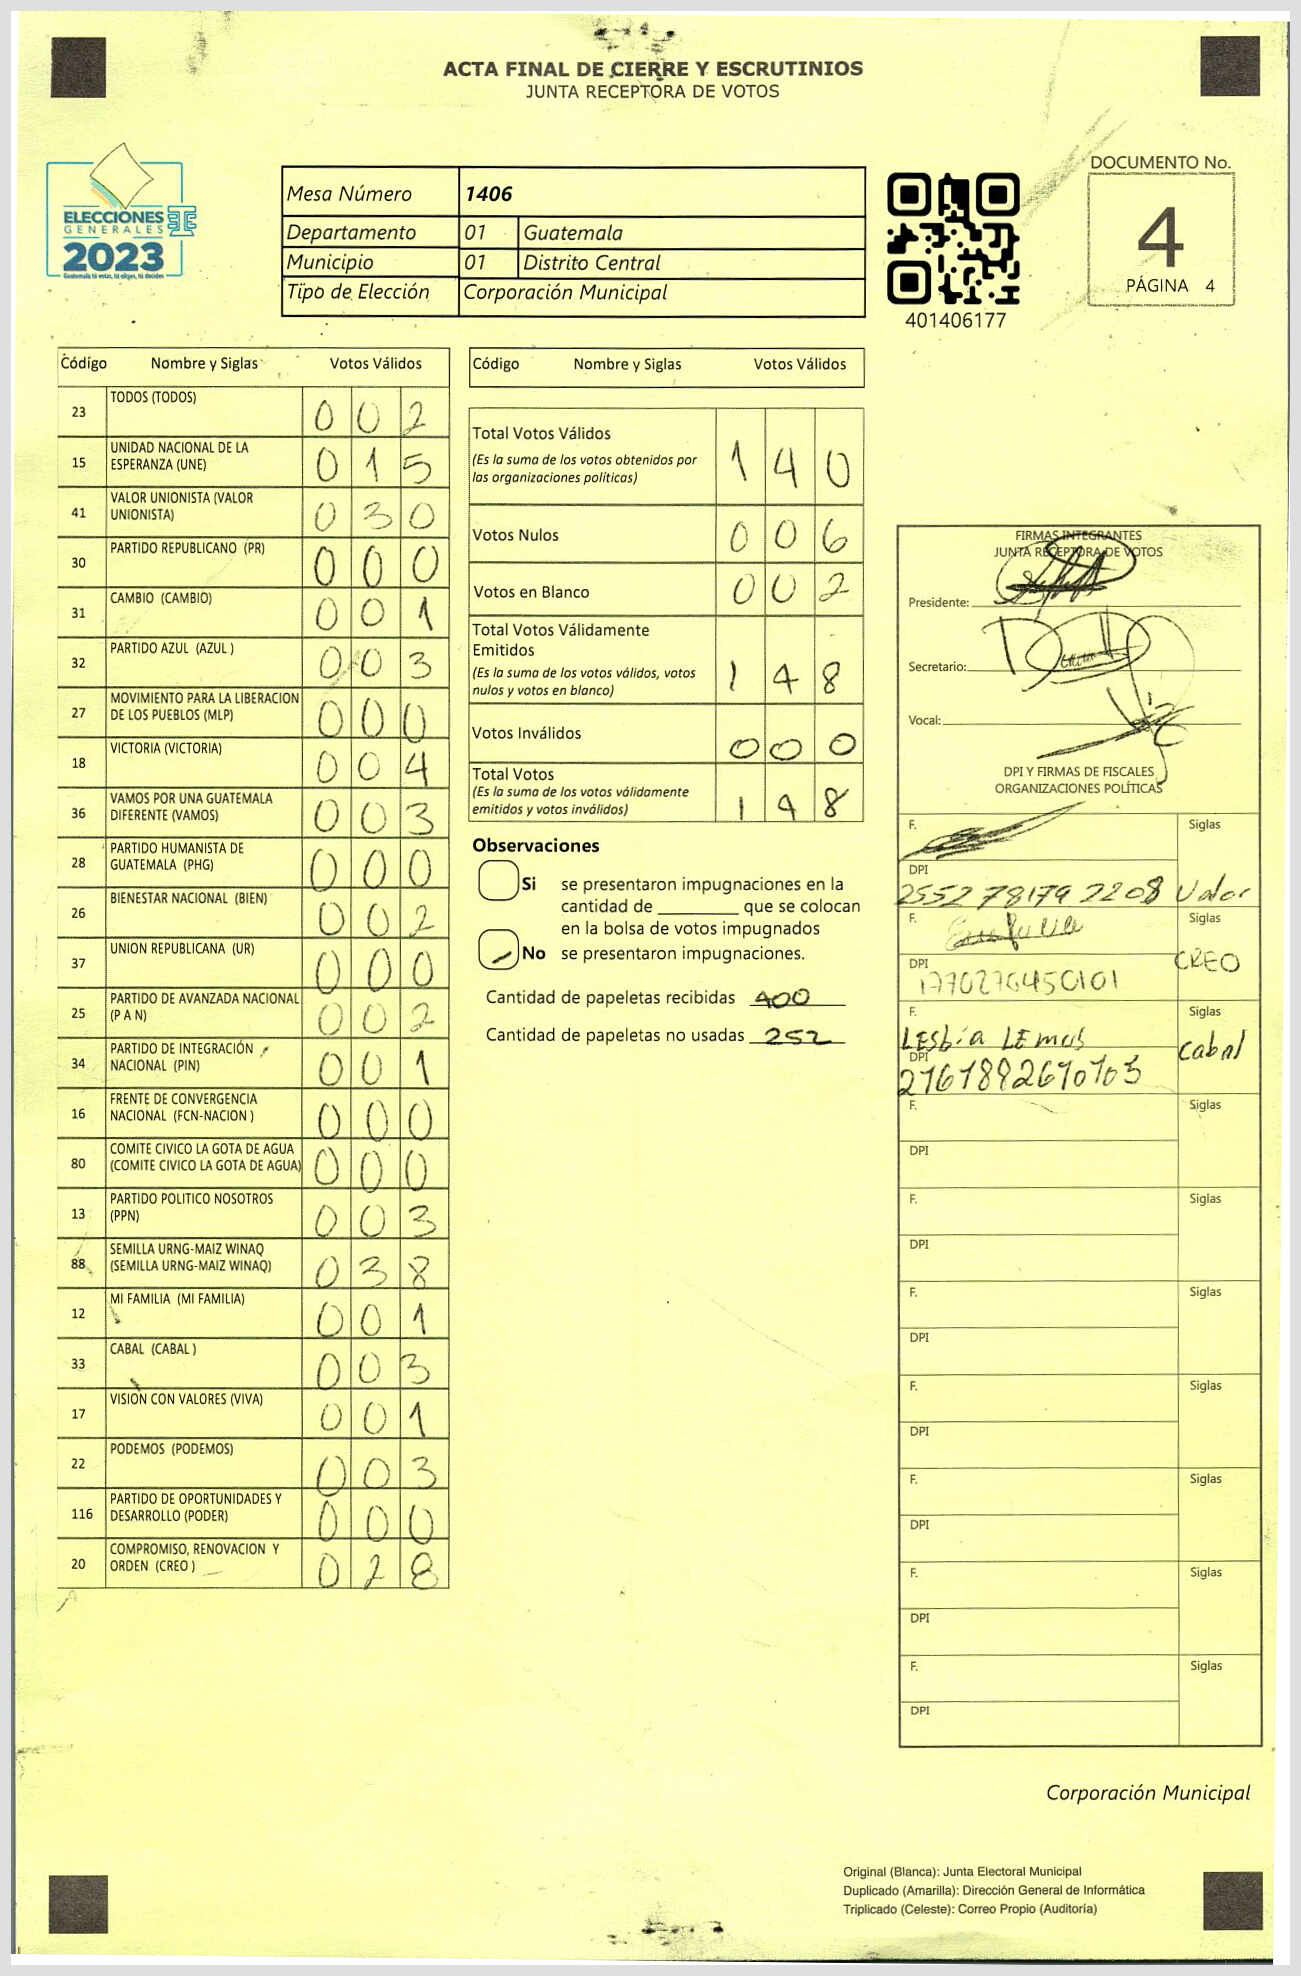 ACTA FINAL DE CIERRE Y ESCRUTINIOS
JUNTA RECEPTORA DE VOTOS
ELECCIONES
GENERALES
2023
Guatemala, tú votas, tú eliges, tú decides
Mesa Número 1406
Departamento 01 Guatemala
Municipio 01 Distrito Central
Tipo de Elección Corporación Municipal
401406177
DOCUMENTO No.
4
PÁGINA 4
Código Nombre y Siglas Votos Válidos
23 TODOS (TODOS) 0 0 2
15 UNIDAD NACIONAL DE LA
ESPERANZA (UNE) 0 1 5
41 VALOR UNIONISTA (VALOR
UNIONISTA) 0 3 0
30 PARTIDO REPUBLICANO (PR) 0 0 0
31 CAMBIO (CAMBIO) 0 0 1
32 PARTIDO AZUL (AZUL ) 0 0 3
27 MOVIMIENTO PARA LA LIBERACION
DE LOS PUEBLOS (MLP) 0 0 0
18 VICTORIA (VICTORIA) 0 0 4
36 VAMOS POR UNA GUATEMALA
DIFERENTE (VAMOS) 0 0 3
28 PARTIDO HUMANISTA DE
GUATEMALA (PHG) 0 0 0
26 BIENESTAR NACIONAL (BIEN) 0 0 2
37 UNION REPUBLICANA (UR) 0 0 0
25 PARTIDO DE AVANZADA NACIONAL
(P A N) 0 0 2
34 PARTIDO DE INTEGRACIÓN
NACIONAL (PIN) 0 0 1
16 FRENTE DE CONVERGENCIA
NACIONAL (FCN-NACION ) 0 0 0
80 COMITE CIVICO LA GOTA DE AGUA
(COMITE CIVICO LA GOTA DE AGUA) 0 0 0
13 PARTIDO POLITICO NOSOTROS
(PPN) 0 0 3
88 SEMILLA URNG-MAIZ WINAQ
(SEMILLA URNG-MAIZ WINAQ) 0 3 8
12 MI FAMILIA (MI FAMILIA) 0 0 1
33 CABAL (CABAL ) 0 0 3
17 VISION CON VALORES (VIVA) 0 0 1
22 PODEMOS (PODEMOS) 0 0 3
116 PARTIDO DE OPORTUNIDADES Y
DESARROLLO (PODER) 0 0 0
20 COMPROMISO, RENOVACION Y
ORDEN (CREO ) 0 2 8
Código Nombre y Siglas Votos Válidos
Total Votos Válidos
(Es la suma de los votos obtenidos por
las organizaciones políticas) 1 4 0
Votos Nulos 0 0 6
Votos en Blanco 0 0 2
Total Votos Válidamente
Emitidos
(Es la suma de los votos válidos, votos
nulos y votos en blanco) 1 4 8
Votos Inválidos 0 0 0
Total Votos
(Es la suma de los votos válidamente
emitidos y votos inválidos) 1 4 8
Observaciones
Si se presentaron impugnaciones en la
cantidad de ________ que se colocan
en la bolsa de votos impugnados
No se presentaron impugnaciones.
Cantidad de papeletas recibidas 400
Cantidad de papeletas no usadas 252
FIRMAS INTEGRANTES
JUNTA RECEPTORA DE VOTOS
Presidente:
Secretario:
Vocal:
DPI Y FIRMAS DE FISCALES
ORGANIZACIONES POLÍTICAS
F. Siglas
DPI
2552 78179 2208 Valor
F. Siglas
CREO
DPI
1770276450101
F. Siglas
Lesbia LEmus
Cabal
DPI
F. Siglas
DPI
F. Siglas
DPI
F. Siglas
DPI
F. Siglas
DPI
F. Siglas
DPI
F. Siglas
DPI
F. Siglas
DPI
Corporación Municipal
Original (Blanca): Junta Electoral Municipal
Duplicado (Amarilla): Dirección General de Informática
Triplicado (Celeste): Correo Propio (Auditoría)